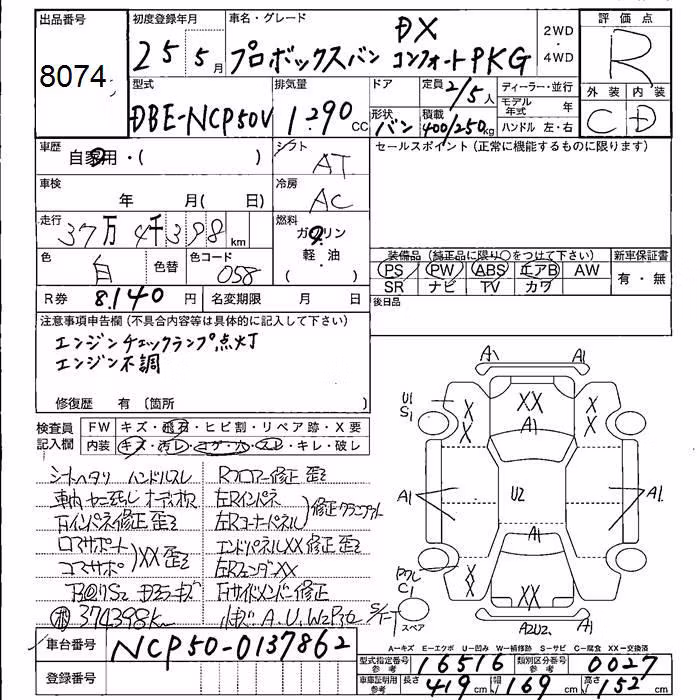 出品番号
8074
初度登録年月
25年5月
車名・グレード
DX
プロボックスバン コンフォートPKG
2WD
・
4WD
評価点
R
外装 内装
C D
型式
DBE-NCP50V
排気量
1290 CC
ドア
形状 バン
定員 2/5人
積載 400/250kg
ディーラー・並行
モデル年式 年
ハンドル 左・右
車歴
自家用・( )
シフト
AT
セールスポイント(正常に機能するものに限ります)
車検
年 月( 日)
冷房
AC
走行
37万4千398km
燃料
ガソリン
軽・油
色
白
色替
色コード
058
装備品(純正品に限り○をつけて下さい)
PS PW ABS エアB AW
SR ナビ TV カワ
新車保証書
有・無
R券 8.140円
名変期限 月 日
後日品
注意事項申告欄(不具合内容等は具体的に記入して下さい)
エンジンチェックランプ点灯
エンジン不調
修復歴 有〔箇所 〕
検査員
記入欄
FW キズ・飛石・ヒビ割・リペア跡・X要
内装 キズ・汚レ・コゲ・穴・スレ・キレ・破レ
シートヘタリ ハンドルスレ
Rフロアー修正 歪ミ
左Rインパネ
左Rコーナーパネル
エンドパネルXX修正 歪ミ
コアサポ
XX歪ミ
374398km
A.U.W2P3
A1 A1
U1
S1
X
X
XX
A1
X
X
A1
U2
A1
A1
C1
X
X
XX
A2U2
A1
スペア
車台番号
NCP50-0137862
登録番号
A-キズ E-エクボ U-凹み W-補修跡 S-サビ C-腐食 XX-交換済
型式指定番号
参考
16516
類別区分番号
参考
0027
車庫証明用
参考
長さ 419cm 幅 169cm 高さ 152cm